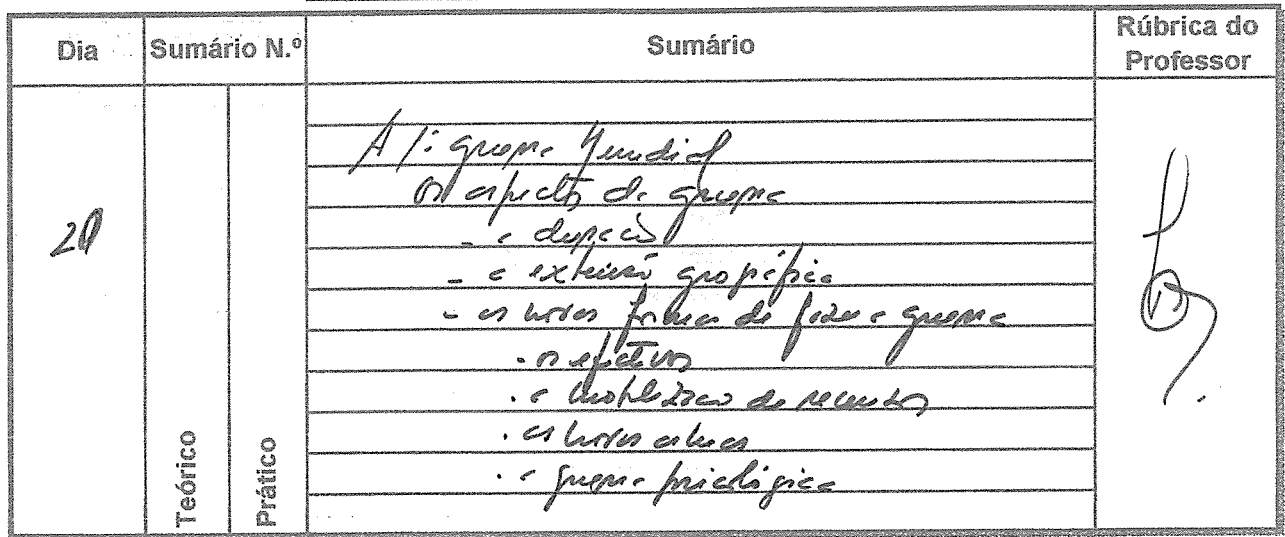 Dia
Sumário N.º
Sumário
Rúbrica do
Professor
Teórico
Prático
A 1ª guerra Mundial
os aspectos da guerra
- a duração
- a extensão geográfica
- as novas formas de fazer a guerra
. os efectivos
. a mobilização de recursos
. as novas armas
. a guerra psicológica